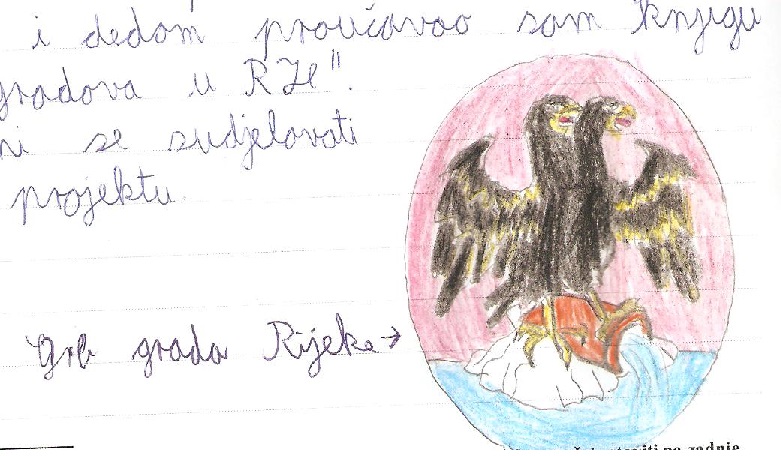 i dedom proučavao sam knjigu
gradova u RH".
mi se sudjelovati
projektu.
Grb grada Rijeke →